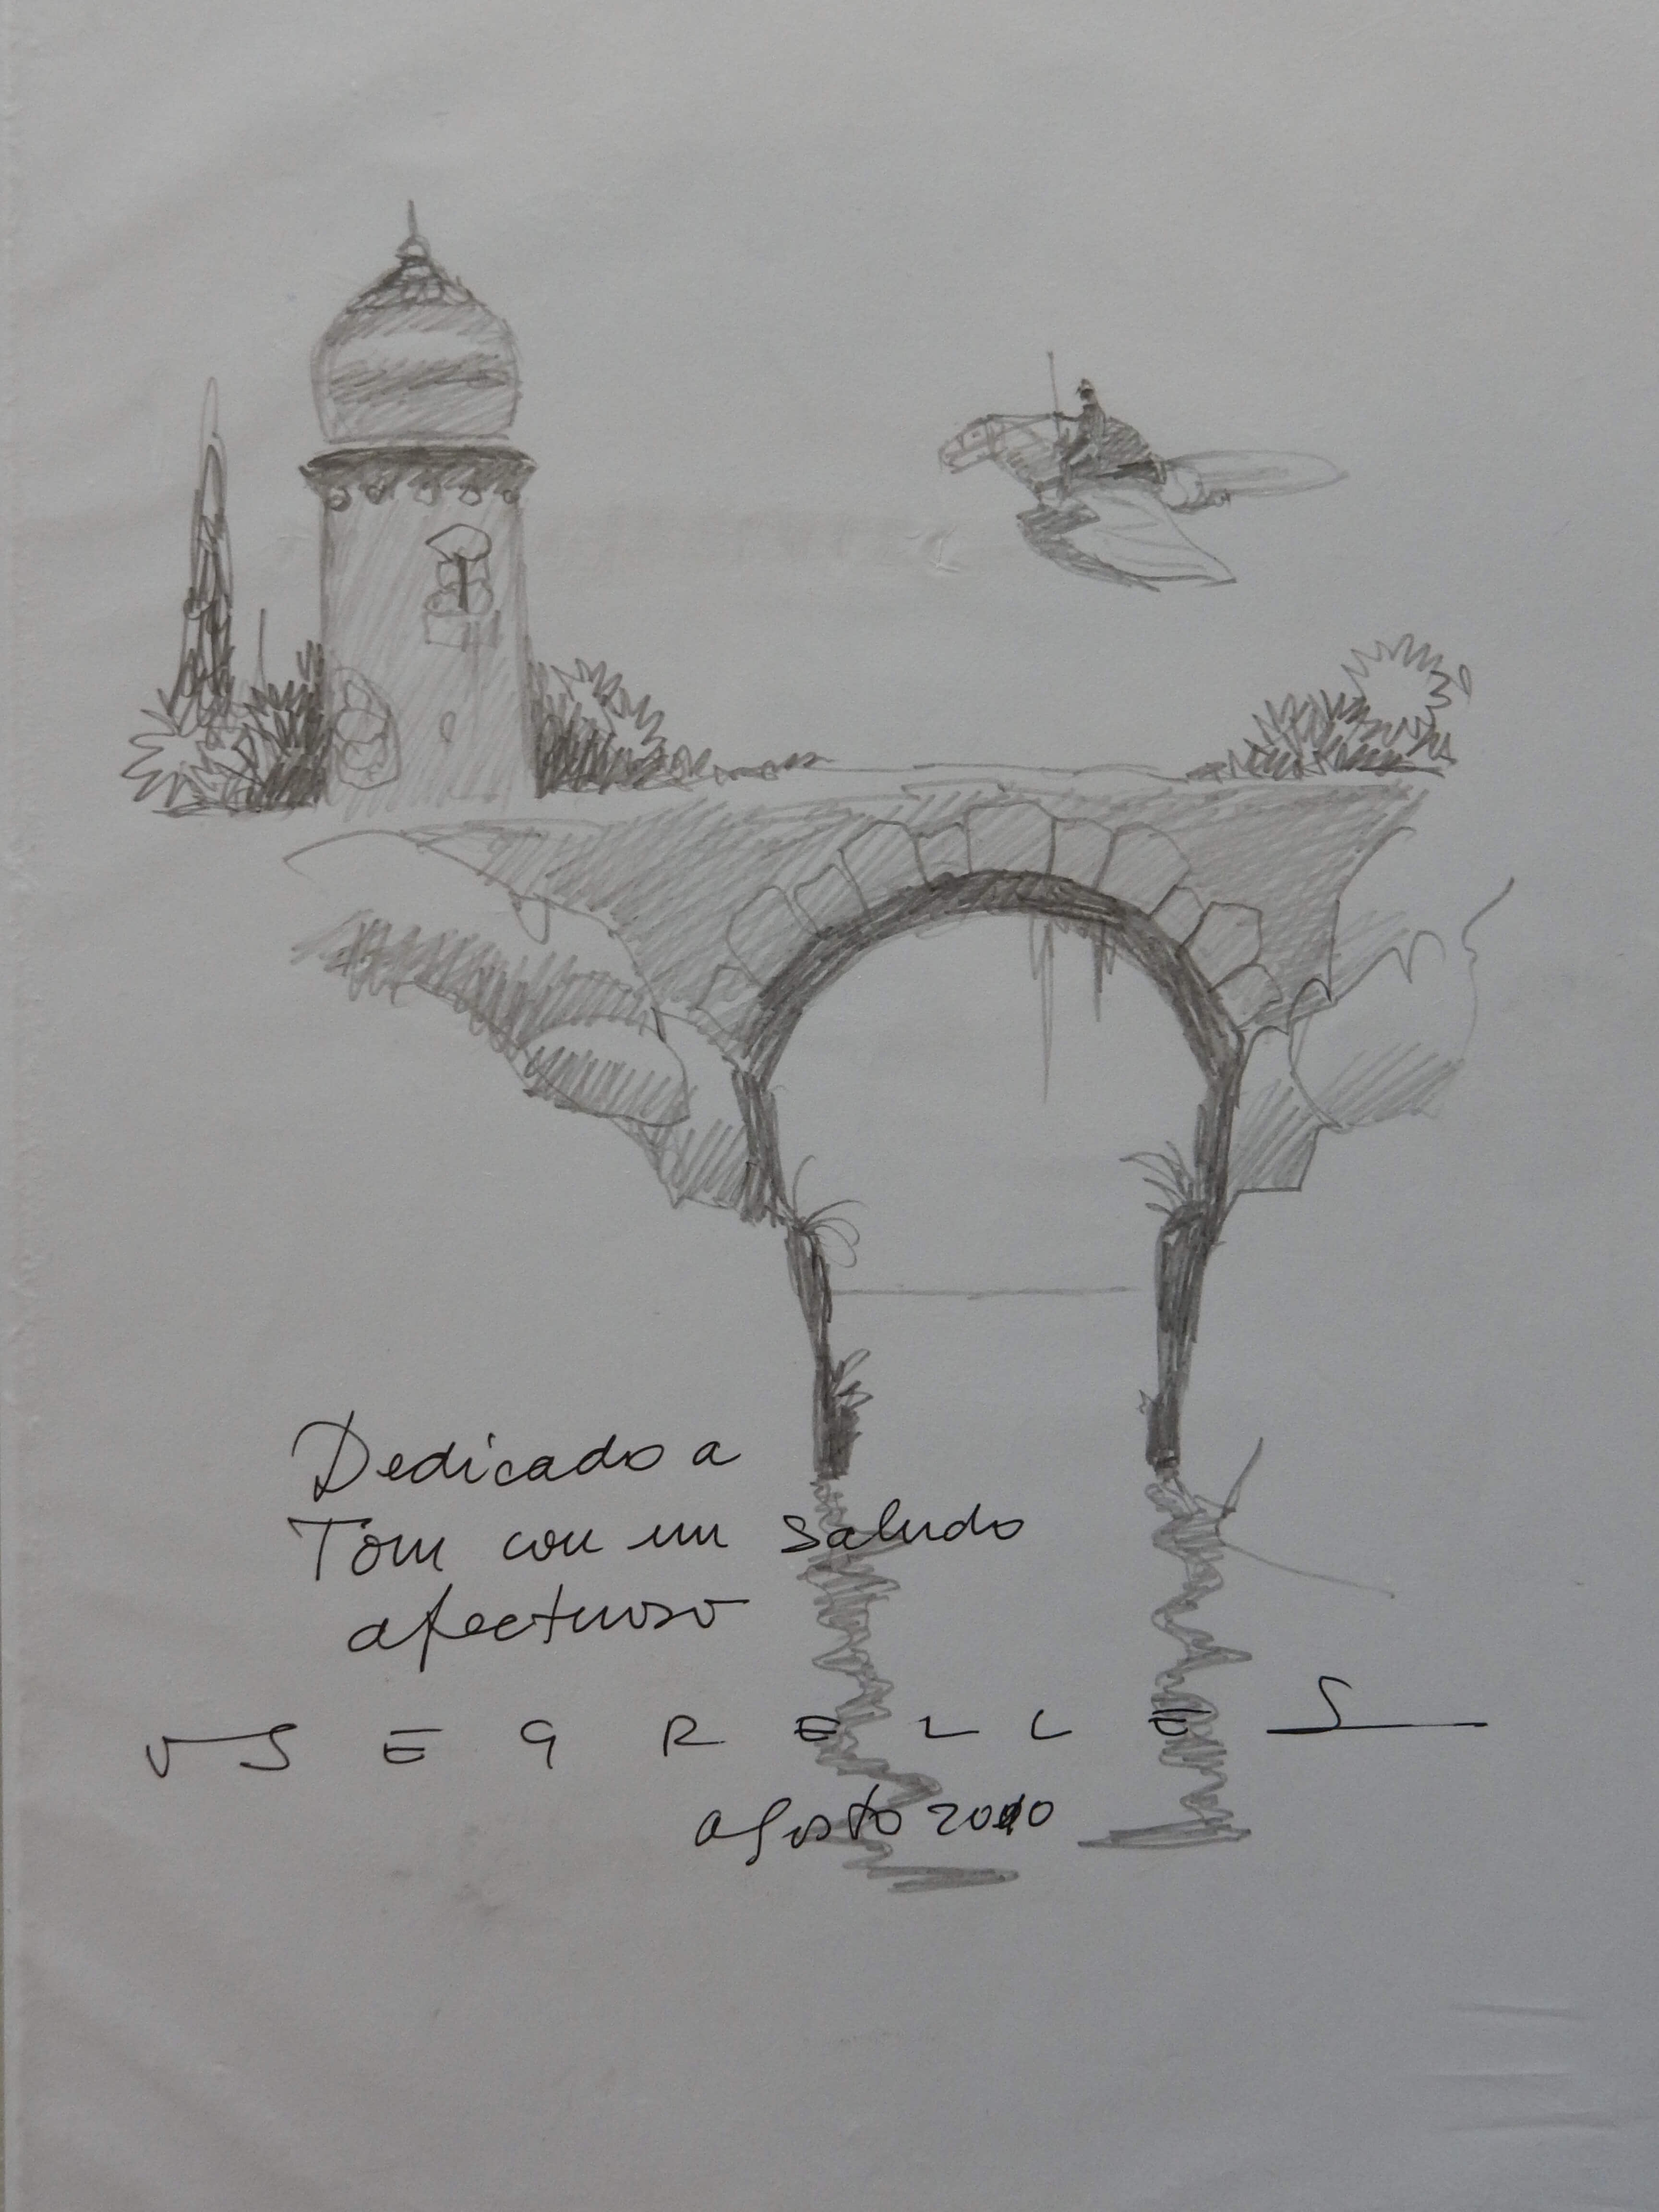 Dedicado a
Tom con un saludo
afectuoso
V SEGRELLES
agosto 2010